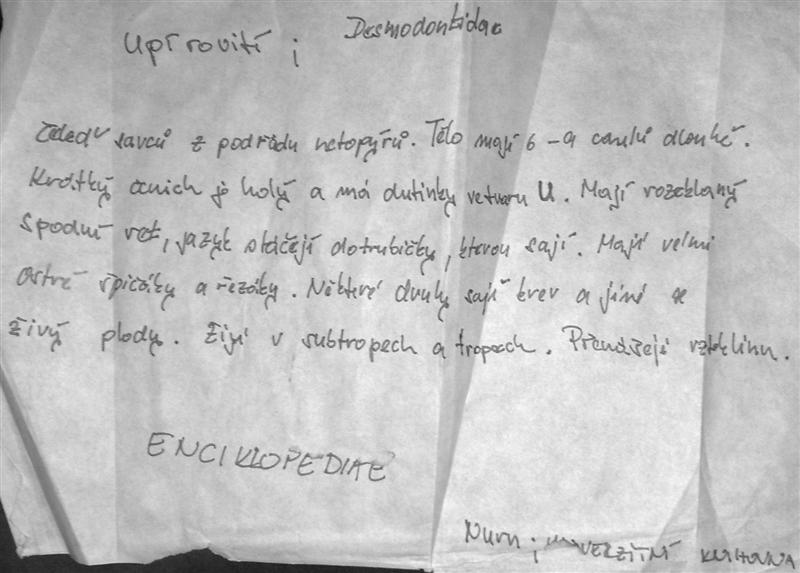 Upírovití ; Desmodontidae
čeleď savců z podřádu netopýrů. Tělo mají 6 - a dlouhé.
Krátký čenich je holý a má dutinky ve tvaru U. Mají rozeklaný
spodní ret, jazyk stáčejí do trubičky, kterou sají. Mají velmi
ostré špičáky a řezáky. Některé druhy sají krev a jiné se
živý plody. Žijí v subtropech a tropech. Přenášejí vzteklinu.
ENCIKLOPEDIAE
UNIVERZITNÍ KNIHOVNA